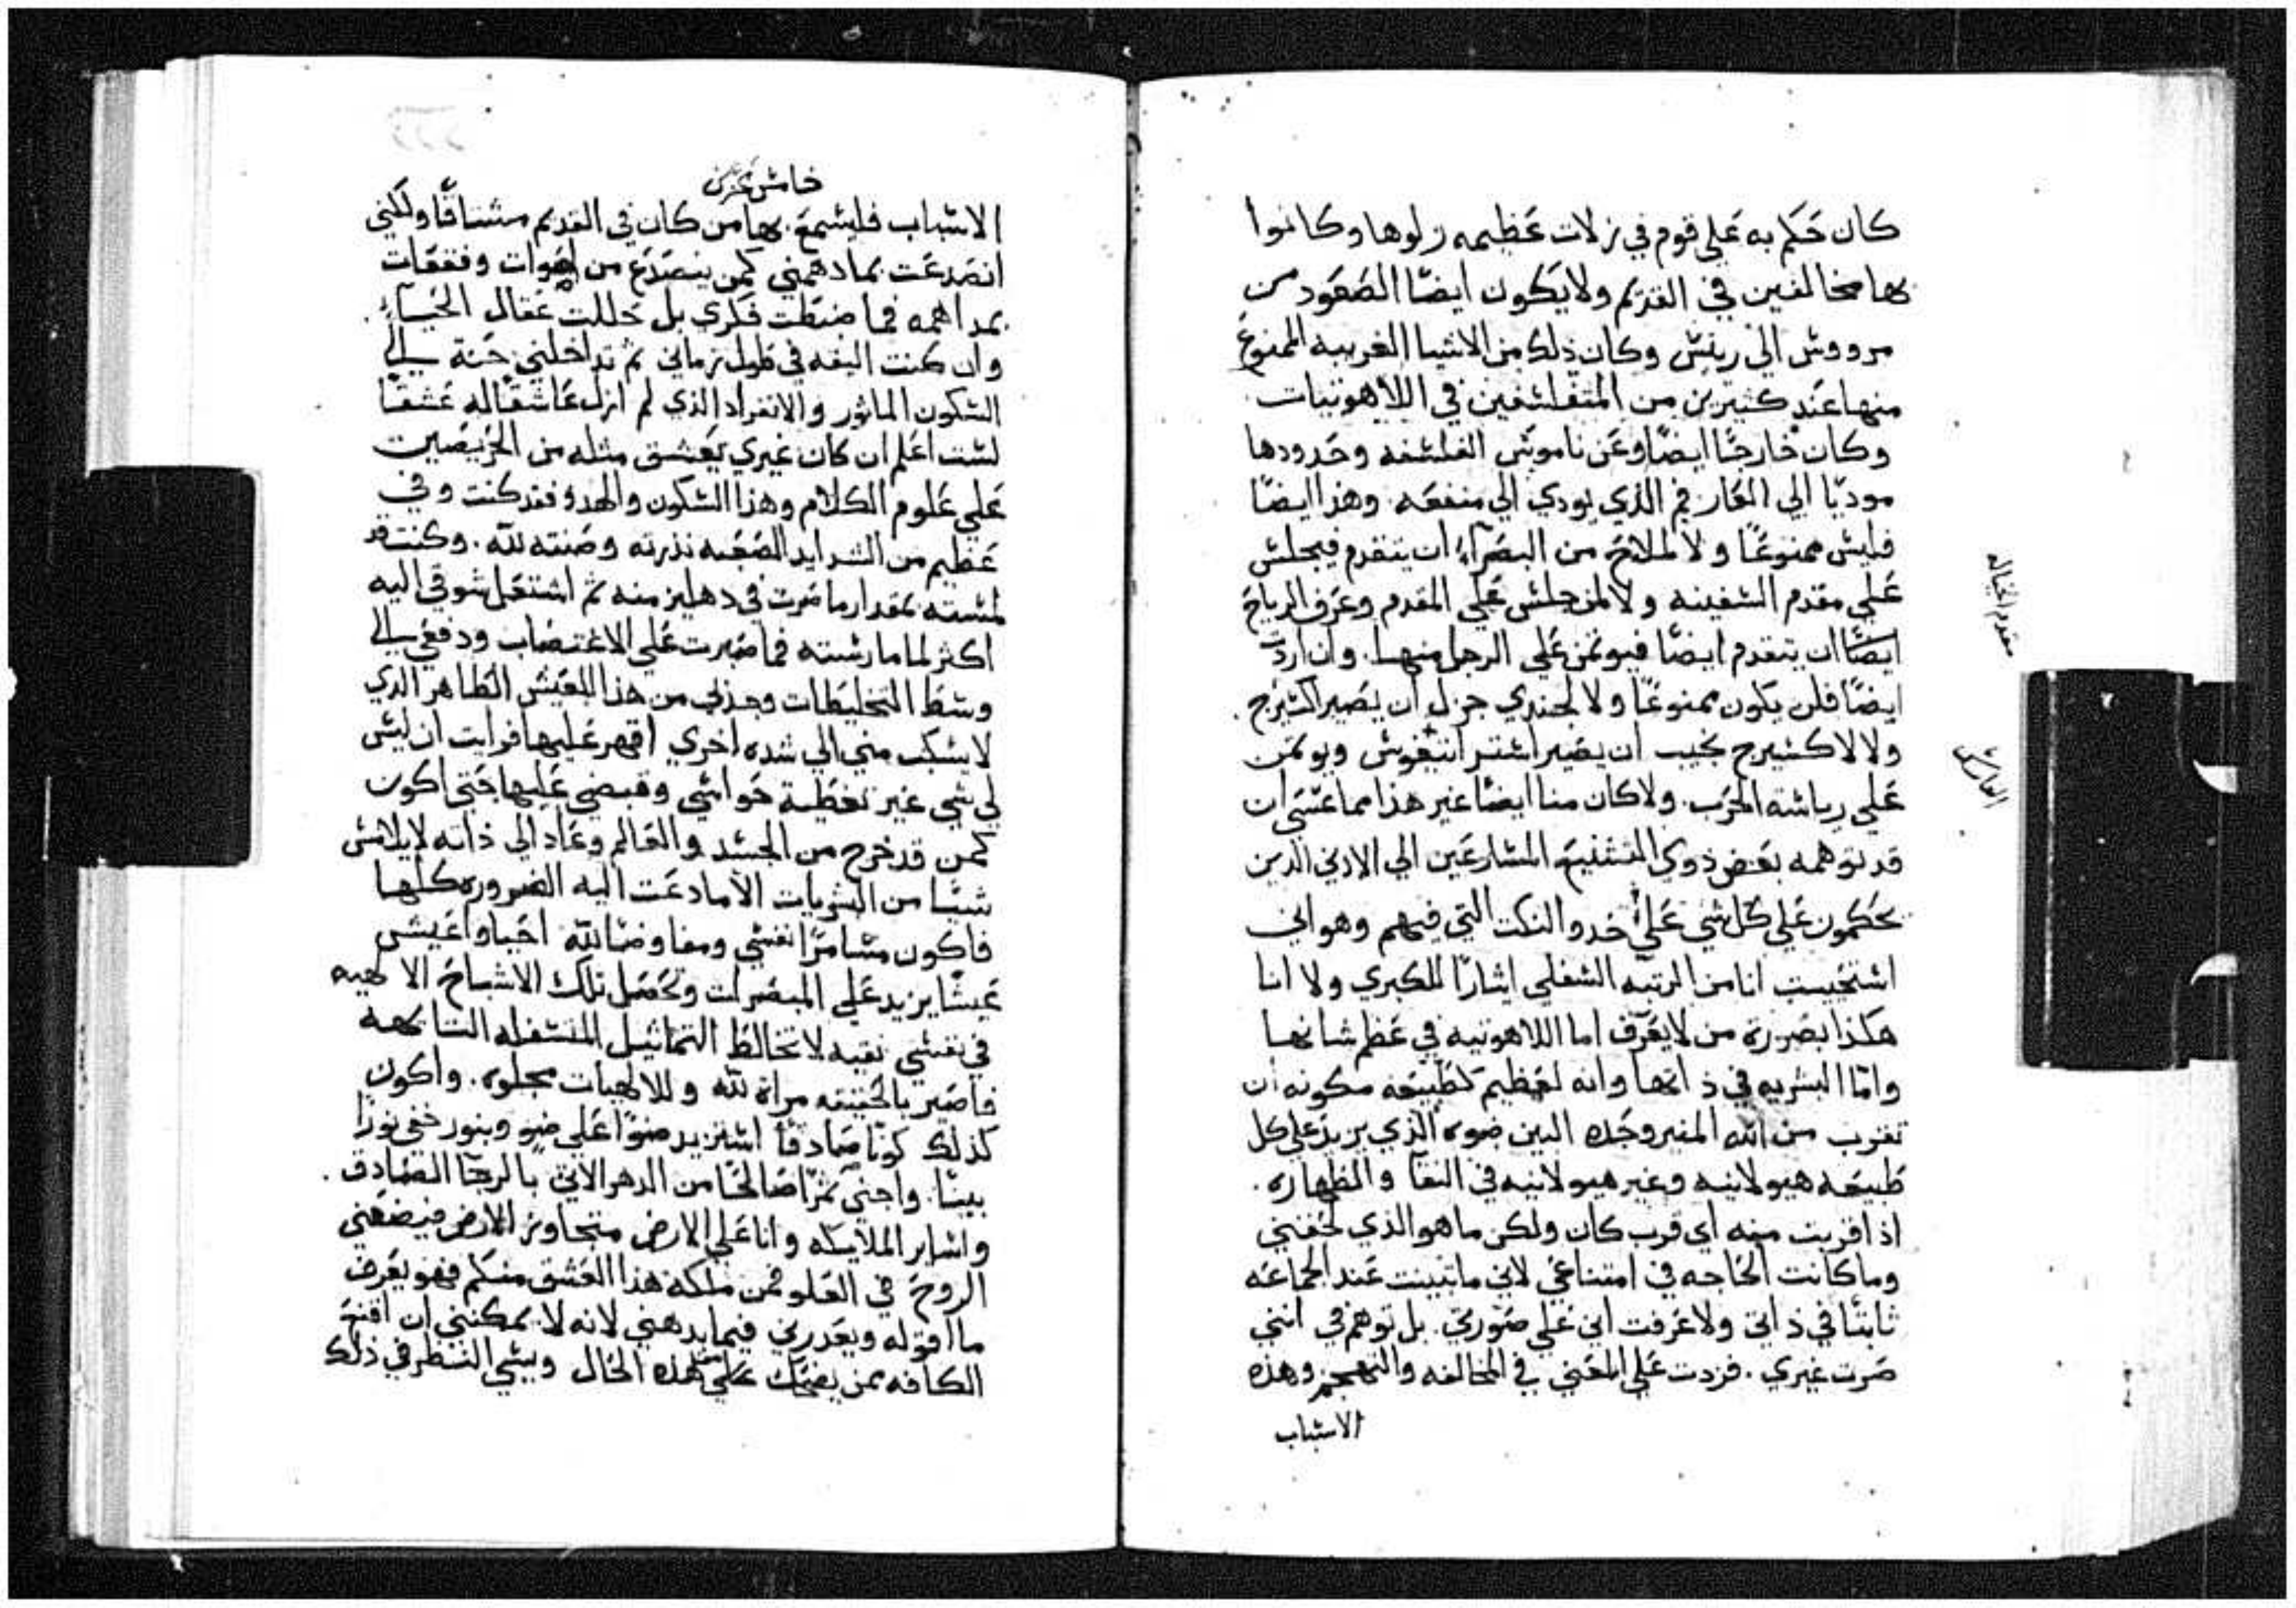 كان حكم به على قوم في زلات عظيمه زلوها وكانوا
بها مخالفين في القديم ولا يكون ايضًا الصعود من
مرووس الي رييس وكان ذلك من الاشيا الغريبه الممنوع
منها عند كثيرين من المتفلسفين في اللاهوتيات
وكان خارجًا ايضًا وعن ناموس الفلسفه وحدودها
موديًا الي العار في الذي يودي الي منفعه. وهذا ايضًا
فليس ممنوعًا ولا لملاح من البصرآء ان يتقدم فيجلس
على مقدم السفينه ولا لمن جلس على المقدم وعرف الرياح
ايضًا ان يتقدم ايضًا فيوتمن على الرجل منها. وان اردت
ايضًا فلن يكون ممنوعًا ولا لجندي جزل ان يصير اكسيرج
ولا لاكسيرج نجيب ان يصير استراتيغوس ويوتمن
على رياسة الحرب. ولا كان منا ايضًا غير هذا مما عسى ان
قد توهمه بعض ذوي التشنيع المسارعين الي الاذي الذين
يحكمون على كل شي على حدو النكت التي فيهم وهو اني
استخيبت انا من الرتبه السفلى ايثارًا للكبري ولا انا
هكذا بصورة من لا يعرف اما اللاهوتيه في عظم شانها
وامّا البشريه في ذاتها وانه لعظيم لطبيعه مكونه ان
تقرب من الله المنير وحده البين ضوه الذي يزيد على كل
طبيعه هيولانيه وغير هيولانيه في النقآ والطهاره.
اذ اقربت منه اي قرب كان ولكن ما هو الذي لحقني
وما كانت الحاجه في امتناعي لاني ما تبينت عند الجماعه
ثابتًا في ذاتي ولا عرفت اني على صورتي. بل توهم في انني
صرت غيري. فزدت على المعني في المخالفه والتهجم وهذه
الاسباب
مقدم الخياله
الفارس
خامس عشر
الاسباب فليسمع بها من كان في القديم مشتاقًا ولكني
انصدعت بما دهمني كمن ينصدع من اصوات وقعقعات
بمداهمه فما ضبطت فكري بل حللت عقال الحيآء
وان كنت اليفه في طول زماني ثم تداخلني حنة الي
السكون الماثور والانفراد الذي لم ازل عاشقًا له عشقًا
لست اعلم ان كان غيري يعشق مثله من الحريصين
على علوم الكلام وهذا السكون والهدؤ فقد كنت وفي
عظيم من الشدايد الصعبه نذرته وضنته لله. وكنت قد
لمسته بمقدار ما صرت في دهليز منه ثم اشتعل شوقي اليه
اكثر لما مارسته فما صبرت على الاغتصاب ودفعي الي
وسط التخليطات وجذبي من هذا العيش الطاهر الذي
لا يسكب مني الي شده اخري اقهر عليها فرايت ان ليس
لي شي غير تغطية حواسي وقبضي عليها حتى اكون
كمن قد خرج من الجسد والعالم وعاد الي ذاته لا يلامس
شيًا من البشريات الا ما دعت اليه الضروره كلها
فاكون مسامرًا نفسي ومفاوضًا الله احيا واعيش
عيشًا يزيد على المبصرات وتحصل تلك الاشباح الالهيه
في نفسي نقيه لا تخالط التماثيل المتسفله التايهه
فاصير بالحقيقه مراة لله وللالهيات مجلوه. واكون
كذلك كونًا صادقًا استزيد ضوًا على ضو وبنور خفي نورًا
بينًا. واجني ثمرًا صالحًا من الدهر الاتي بالرجآ الصادق.
واساير الملايكه وانا على الارض متجاوز الارض فيضعني
الروح في العلو فمن ملكه هذا العشق منكم فهو يعرف
ما اقوله ويعدرني فيما يدهني لانه لا يمكنني ان اقنع
الكافه ممن يضحك على هذه الحال ويسي النظر في ذلك